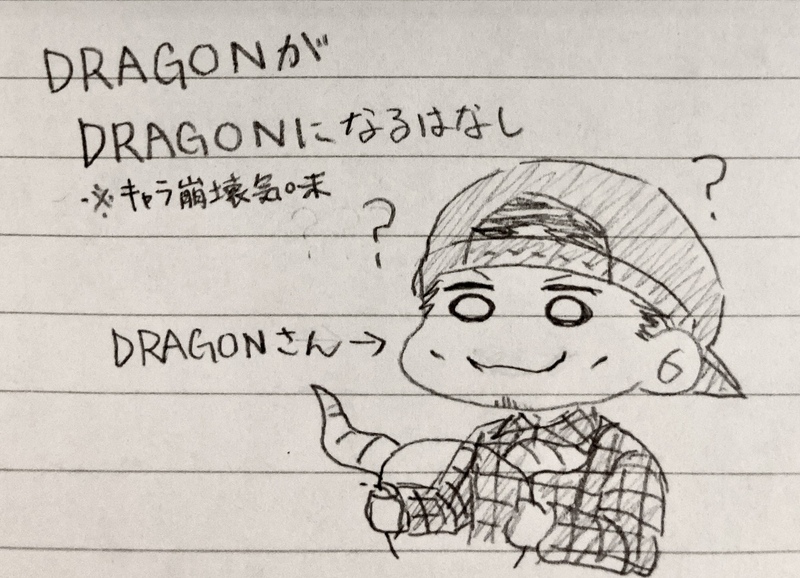 DRAGONが
DRAGONになるはなし
※キャラ崩壊気味
?
?
DRAGONさん→